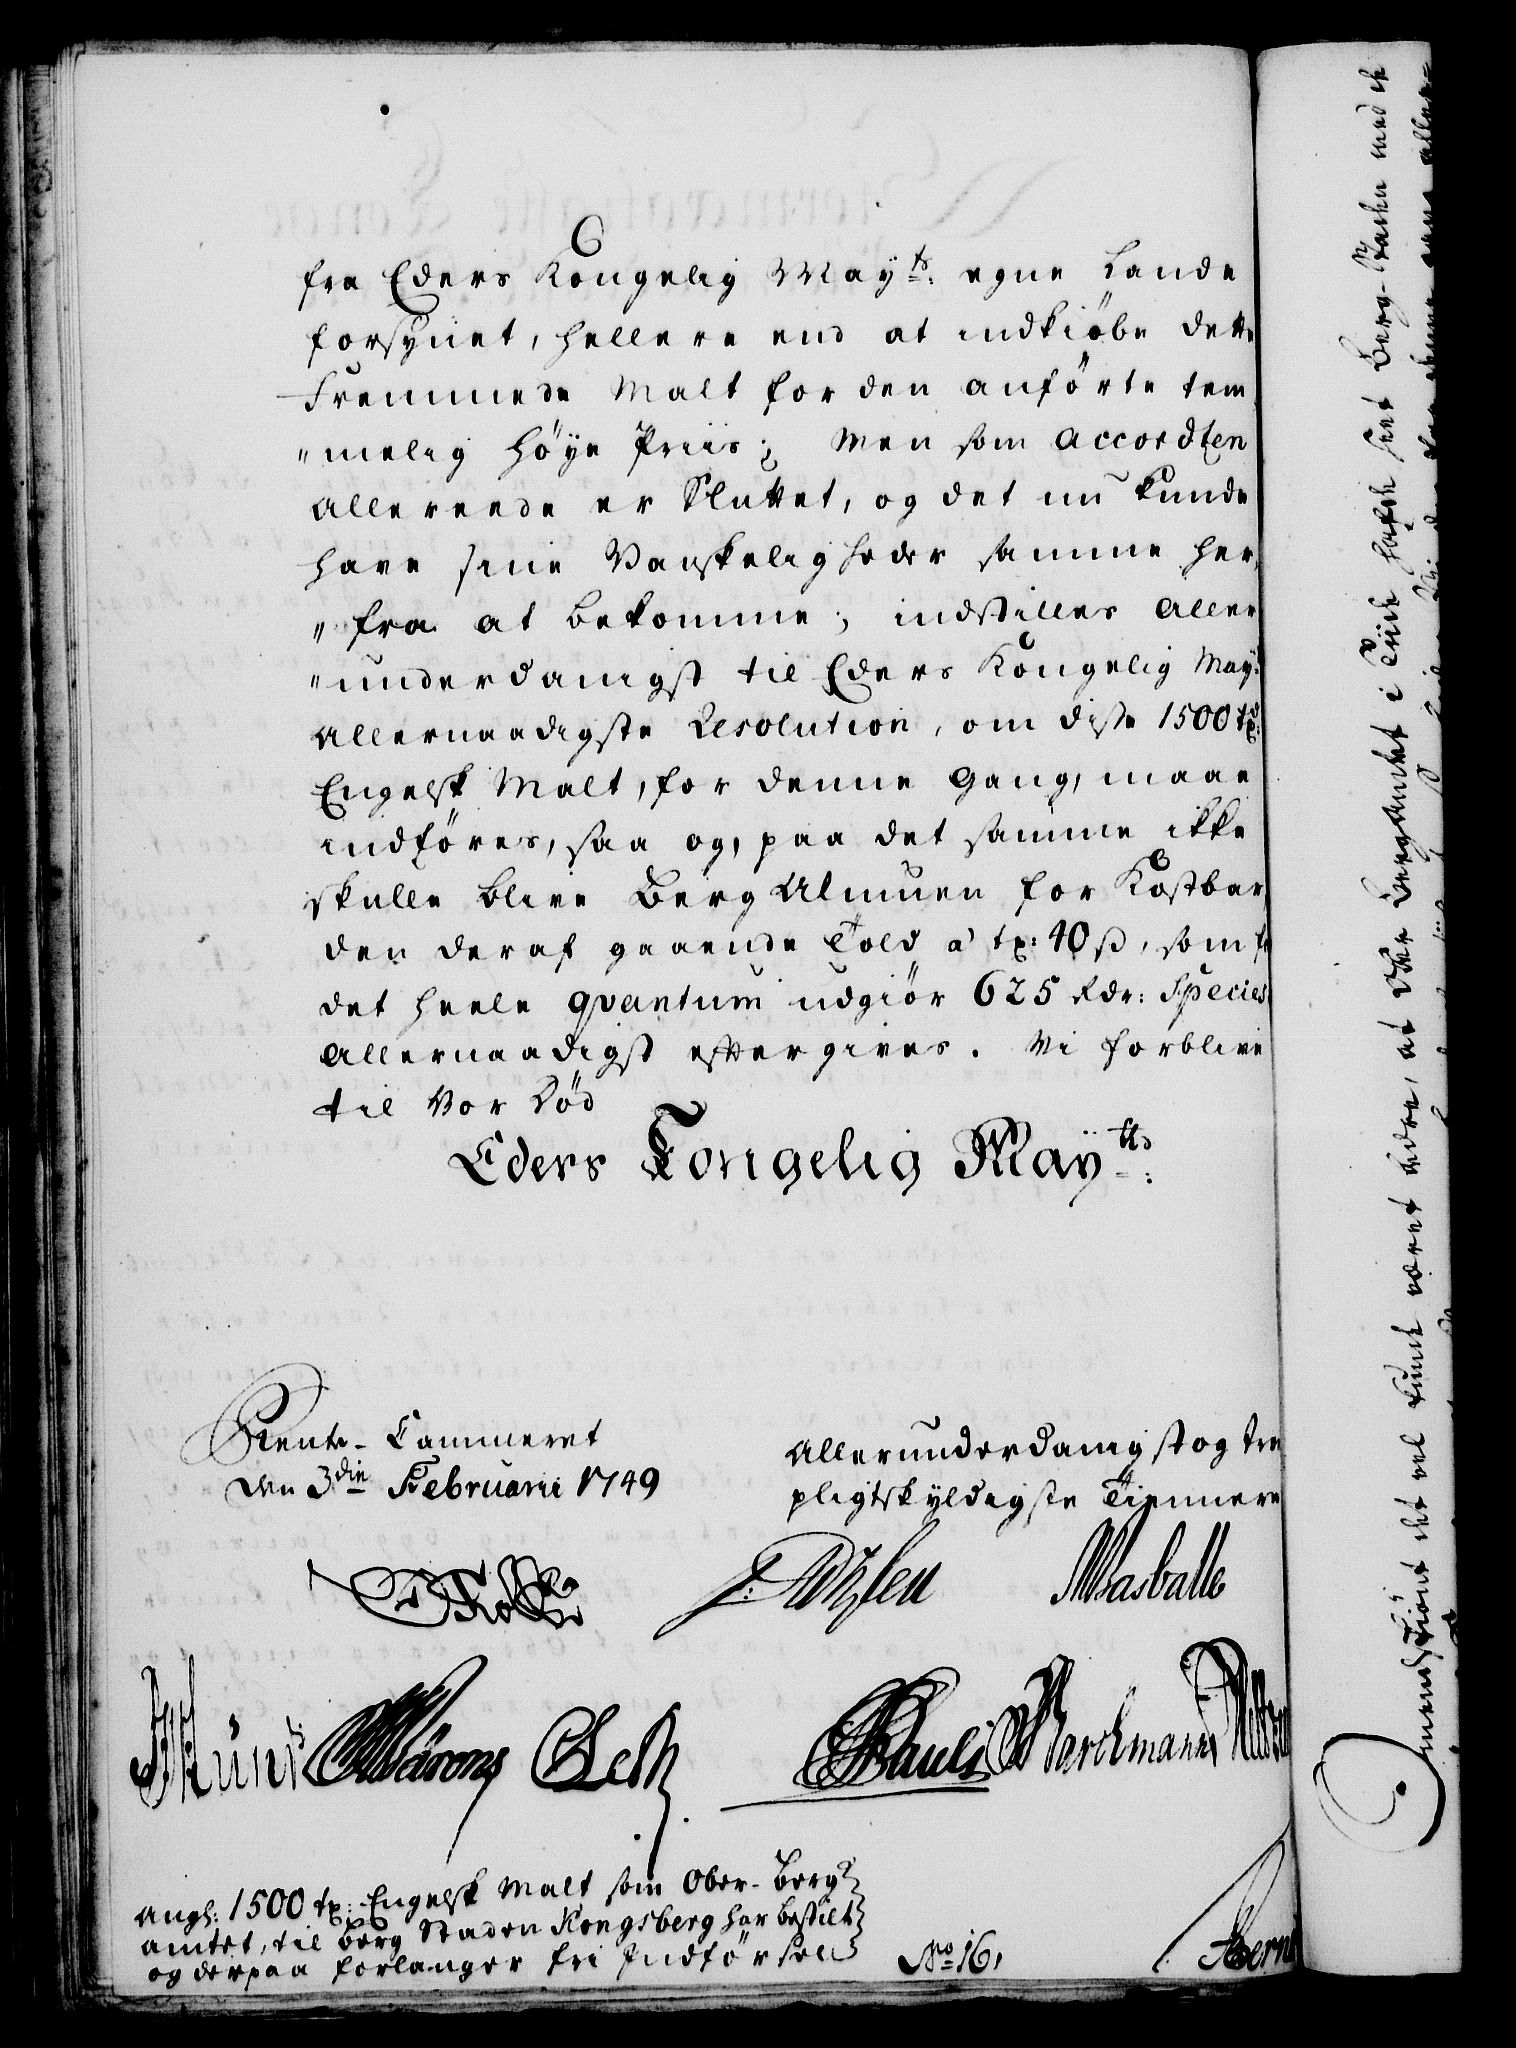 fra Eders Kongelig Mayts: egne Lande
forsynet, hellere end at indkiöbe dette
Fremmede Malt for den anförte tem
"melig höye Priis; Men som Accordten
allereede er Sluttet, og det nu kunde
have sine Vanskeligheder samme her,
"fra at bekomme; indstilles aller
"underdanigst til Eders Kongelig Mayts:
allernaadigste Resolution, om disse 1500 tdr:
Engelsk Malt, for denne Gang, maae
indföres, saa og, paa det samme ikke
skulle blive Berg Almuen for Kostbar,
den deraf gaaende Told a' tr: 40 ß, som f
det heele qvantum udgiör 625 Rdr: Species
allernaadigst eftergives. Vi forblive
til Vor Död
Eders Kongelig Mayts:
Rente-Cammeret
den 3die Februarii 1749
Allerunderdanigst og tro
pligtskyldigste Tiennere
Holst
Masballe
Pauli
Barchmann
angl: 1500 tr: Engelsk Malt som Ober-Berg
amtet, til Berg Staden Kongsberg har bestilt
og derpaa forlanger fri Indförsel
No 16,
Omendskiönt det vel kunde været ædre, at Ober Bergamtet i Tiide hafde seet Berg-Staden med de